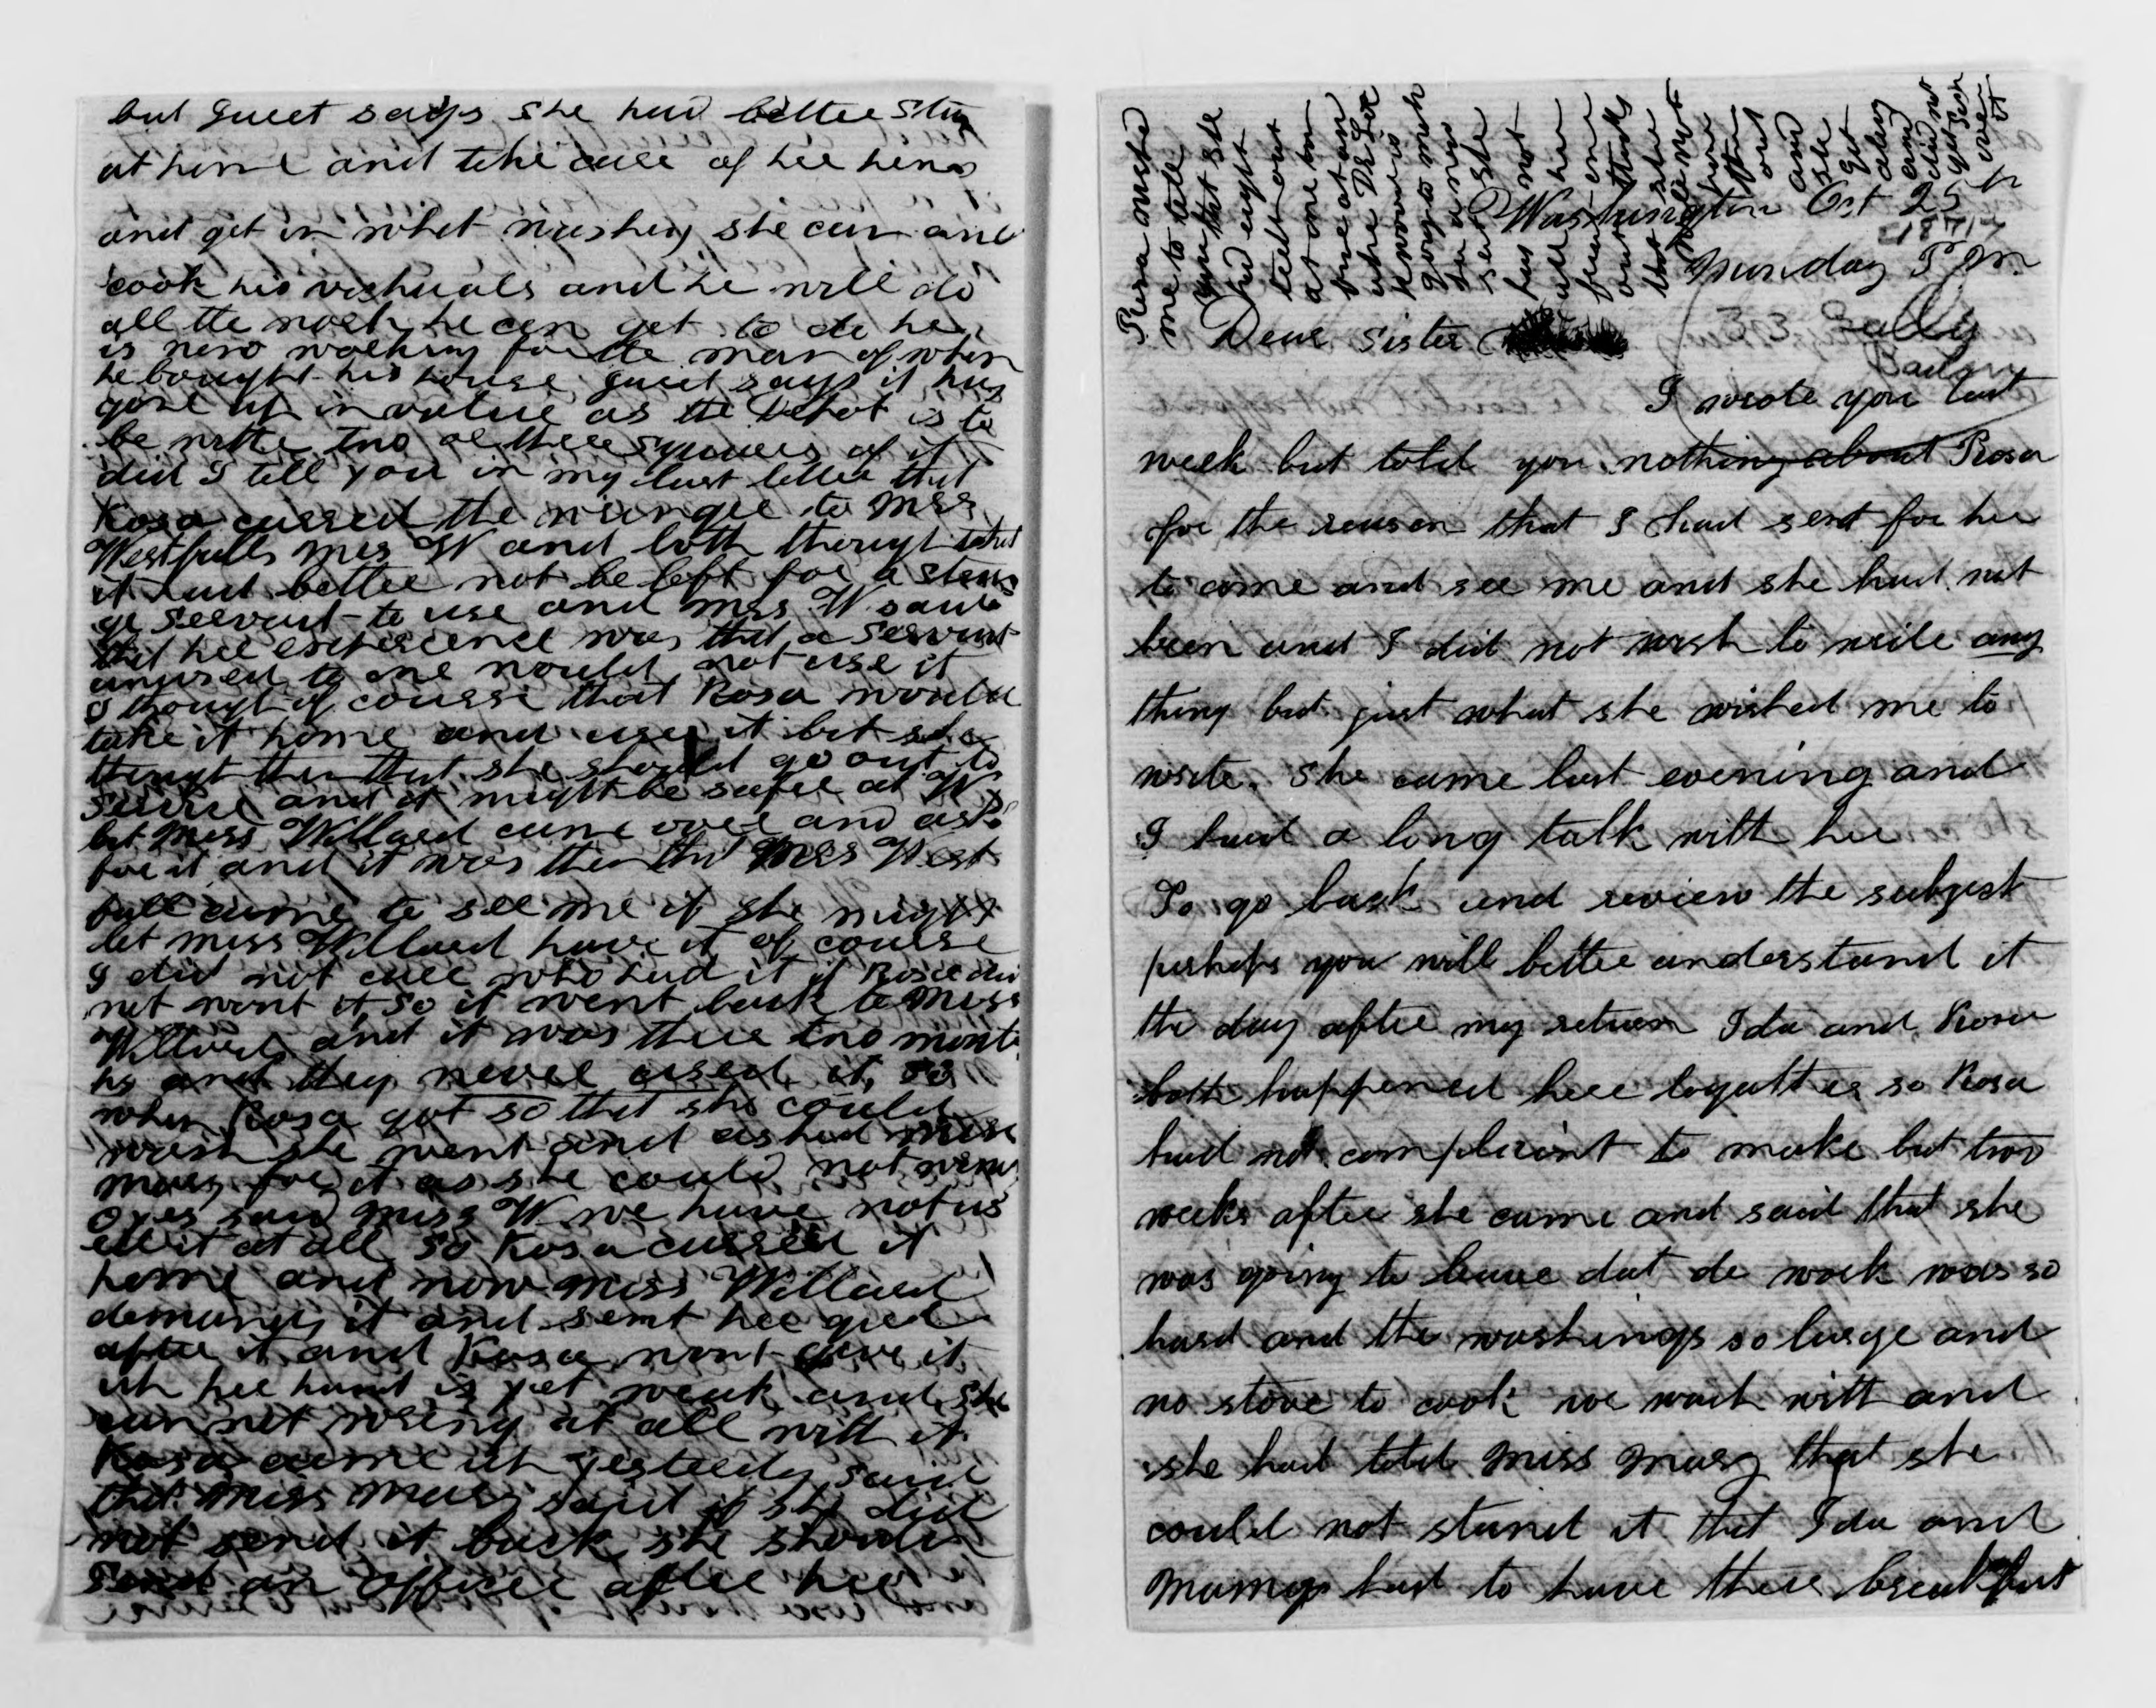 but Guest says she had better stay
at home and take care of her hens
and get in what washing she can and
cook his victuals and he will do
all the work he can get to do he
is now working for the man of whom
he bought his house Guest says it has
gone up in value as the Depot is to
be within two or three squares of it
did I tell you in my last letter that
Rosa carried the wringer to Mrs
Westfalls Mrs W and both thought that
it had better not be left for a stran
ge servant to use and Mrs W said
that her experience was that a servant
unused to one would not use it
I thought of course that Rosa would
take it home and use it but she
thought then that she should go out to
service and it might be safer at W's
but Miss Willard came over and ask
for it and it was then that Mrs West
fall came to see me if she might
let Miss Willard have it of course
I did not care who had it if Rosa did
not want it, so it went back to Miss
Willards and it was there two mont
hs and they never used it, so
when Rosa got so that she could
wash she went and asked Miss
Mary for it as she could not wring
O yes said Miss W we have not us
ed it at all so Rosa carried it
home and now Miss Willard
demands it and sent her girl
after it and Rosa wont give it
up her hand is yet weak and she
can not wring at all with it
Rosa came up yesterday said
that Miss Mary said if she did
not send it back she should
send an officer after her
Rosa wished
me to tell
you that she
had eight
teeth out
at one time
at
Dr
is
going to
has not
all
one
that she
out
and
she
got
did not
get
over it
Washington Oct 25th
1871
Munday P m
33
Sally
Barlow
Dear Sister
I wrote you last
week but told you nothing about Rosa
for the reason that I had sent for her
to come and see me and she had not
been and I did not wish to write any
thing but just what she wished me to
write. She came last evening and
I had a long talk with her
To go back and review the subject
perhaps you will better understand it
the day after my return Ida and Rosa
both happened here togather so Rosa
had no complaint to make but two
weeks after she came and said that she
was going to leave dat de work was so
hard and the washings so large and
no stove to cook we wait with and
she had told Miss Mary that she
could not stand it that Ida and
Mamys had to have there breakfast